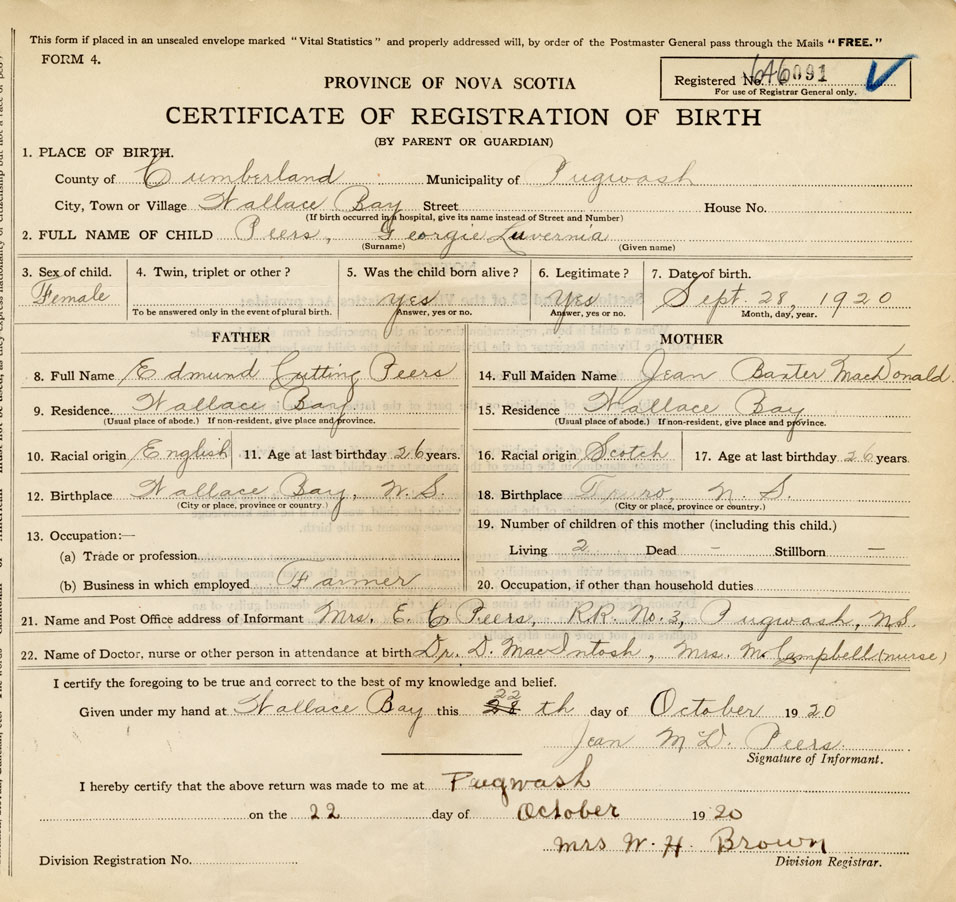 This form if placed in an unsealed envelope marked "Vital Statistics" and properly addressed will, by order of the Postmaster General pass through the Mails "FREE."
FORM 4.
Registered No. 646091
For use of Registrar General only.
PROVINCE OF NOVA SCOTIA
CERTIFICATE OF REGISTRATION OF BIRTH
(BY PARENT OR GUARDIAN)
1. PLACE OF BIRTH.
County of Cumberland Municipality of Pugwash
City, Town or Village Wallace Bay Street House No.
(If birth occurred in a hospital, give its name instead of Street and Number)
2. FULL NAME OF CHILD Peers, Georgie Luvernia
(Surname) (Given name)
3. Sex of child. 4. Twin, triplet or other? 5. Was the child born alive? 6. Legitimate? 7. Date of birth.
Female yes Yes Sept. 28, 1920
To be answered only in the event of plural birth. Answer, yes or no. Answer, yes or no. Month, day, year.
FATHER MOTHER
8. Full Name Edmund Cutting Peers 14. Full Maiden Name Jean Baxter MacDonald.
9. Residence. Wallace Bay 15. Residence Wallace Bay
(Usual place of abode.) If non-resident, give place and province. (Usual place of abode.) If non-resident, give place and province.
10. Racial origin English 11. Age at last birthday 26 years. 16. Racial origin Scotch 17. Age at last birthday 26 years.
12. Birthplace Wallace Bay, N.S. 18. Birthplace Truro, N.S.
(City or place, province or country.) (City or place, province or country.)
13. Occupation:— 19. Number of children of this mother (including this child.)
(a) Trade or profession Living 2 Dead - Stillborn —
(b) Business in which employed Farmer 20. Occupation, if other than household duties
21. Name and Post Office address of Informant Mrs. E C Peers, R.R. No. 3, Pugwash, N.S.
22. Name of Doctor, nurse or other person in attendance at birth Dr. D. MacIntosh, Mrs. M. Campbell (nurse)
I certify the foregoing to be true and correct to the best of my knowledge and belief.
22
Given under my hand at Wallace Bay this 28 th day of October 1920
Jean McD. Peers.
Signature of Informant.
I hereby certify that the above return was made to me at Pugwash
on the 22 day of October 1920
Mrs W. H. Brown
Division Registration No. Division Registrar.